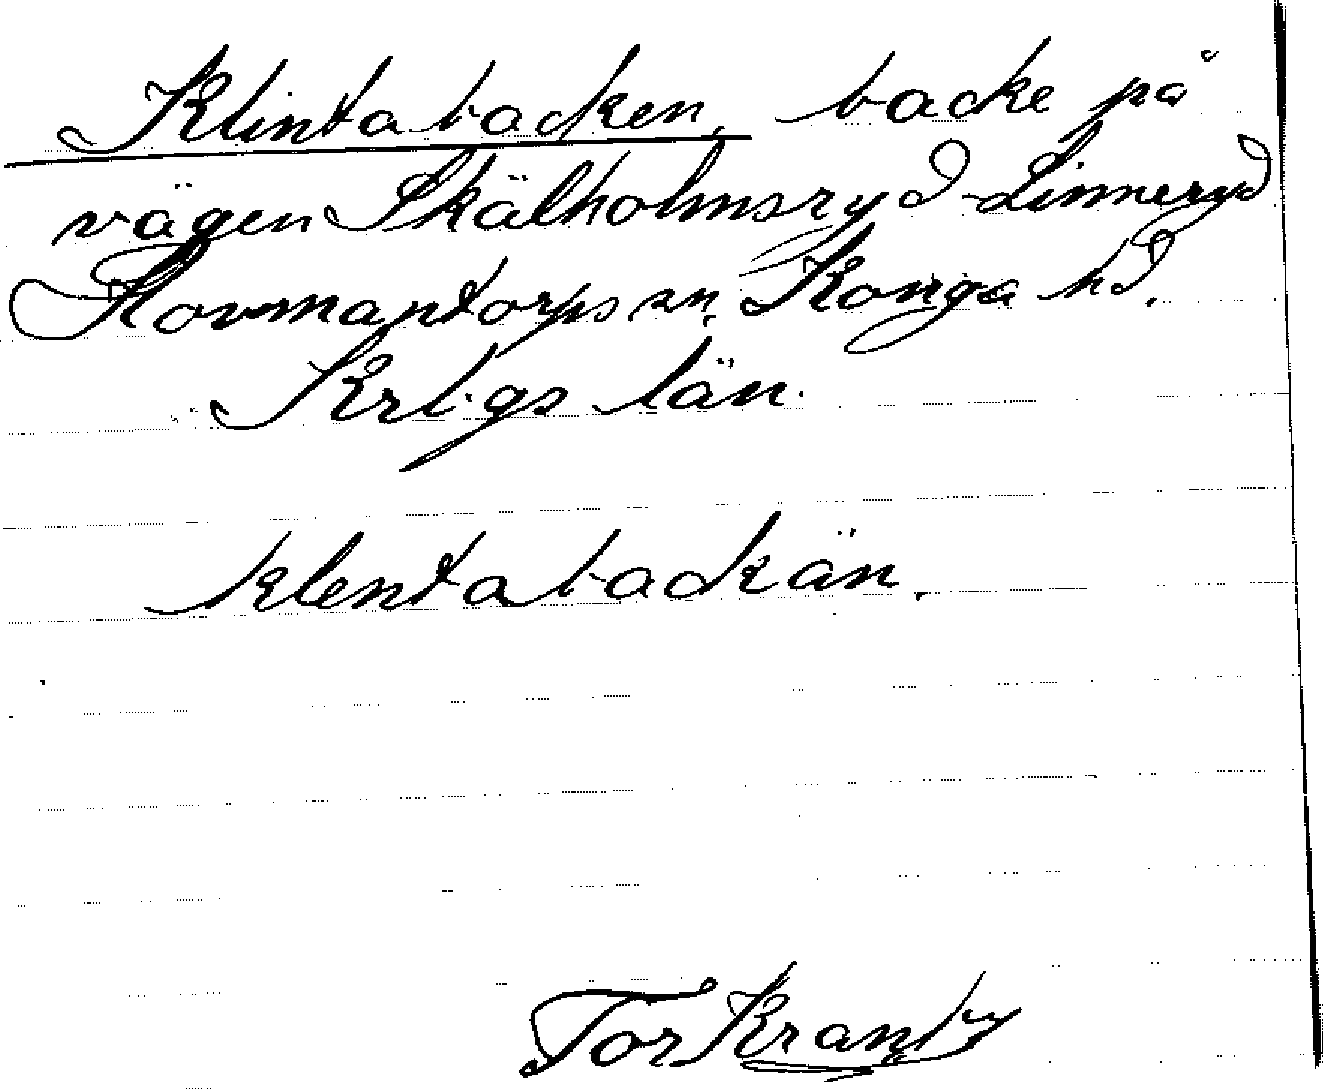 Klintabacken, backe på
vägen Skälholmsryd-Linneryd
Hovmantorps sn, Konga hd.
Krbgs län.
klentabackän.
Tor Krantz